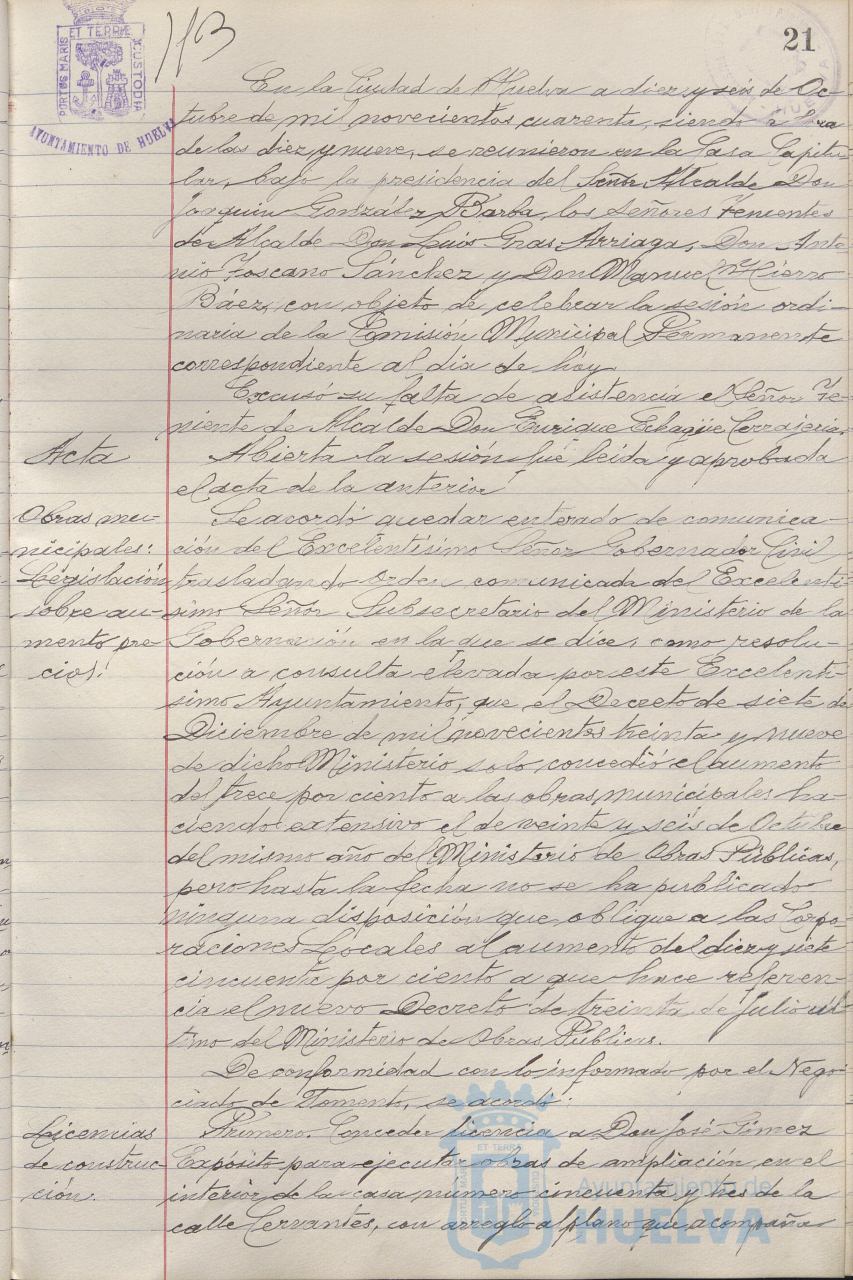 113
21
PORTUS MARIS ET TERRÆ CUSTODIA
AYUNTAMIENTO DE HUELVA
En la Ciudad de Huelva a diez y seis de Oc-
tubre de mil novecientos cuarenta, siendo a hora
de las diez y nueve, se reunieron en la Casa Capitu-
lar, bajo la presidencia del Señor Alcalde Don
Joaquin González Barba, los Señores Tenientes
de Alcalde Don Luis Gras Arriaga, Don Anto-
nio Toscano Sánchez y Don Manuel Mª Hierro
Báez, con objeto de celebrar la sesión ordi-
naria de la Comisión Municipal Permanente
correspondiente al dia de hoy
Excusó su falta de asistencia el Señor Te-
niente de Alcalde Don Enrique Echagüe Cerrajeria.
Acta
Abierta la sesión fué leida y aprobada
el acta de la anterior
Obras mu-
nicipales:
Legislación
sobre au-
mento pre-
cios.
Se acordó quedar enterado de comunica-
ción del Excelentísimo Señor Gobernador Civil,
trasladando Orden comunicada del Excelentí-
simo Señor Subsecretario del Ministerio de la
Gobernación en la que se dice, como resolu-
ción a consulta elevada por este Excelentí-
simo Ayuntamiento, que el Decreto de siete de
Diciembre de mil novecientos treinta y nueve
de dicho Ministerio solo concedió el aumento
del trece por ciento a las obras municipales ha-
ciendo extensivo el de veinte y seis de Octubre
del mismo año del Ministerio de Obras Públicas,
pero hasta la fecha no se ha publicado
ninguna disposición que oblique a las Corpo-
raciones Locales al aumento del diez y siete
cincuenta por ciento a que hace referen-
cia el nuevo Decreto de treinta de Julio últ-
imo del Ministerio de Obras Públicas.
De conformidad con lo informado por el Nego-
ciado de Fomento, se acordó:
Licencias
de construc-
ción.
Primero. Conceder licencia a Don José Gimez
Expósito para ejecutar obras de ampliación en el
interior de la casa número cincuenta y tres de la
calle Cervantes, con arreglo al plano que acompaña
Ayuntamiento de
HUELVA